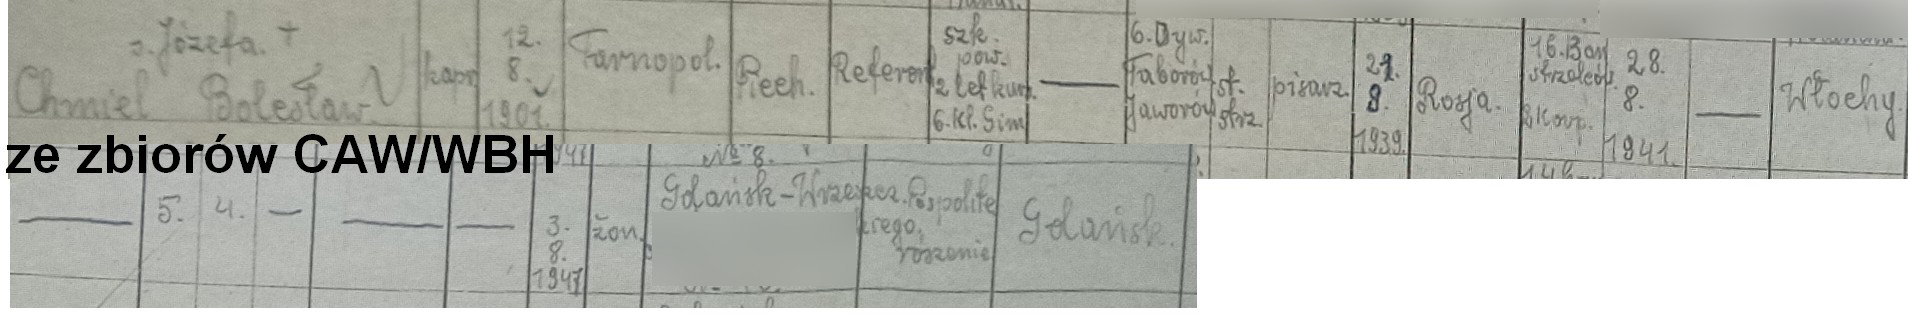 s. Józefa. +
Chmiel Bolesław.
kapr.
12.
8.
1901.
Tarnopol.
Piech.
Referent
szk.
pow.
2 let kurs.
6. Kl. Gim
—
6. Dyw.
Taborów
Jaworów
st.
strz.
pisarz.
29.
8.
1939.
Rosja.
16. Bao
strzelców.
2 Komp.
28.
8.
1941.
—
Włochy.
ze zbiorów CAW/WBH
1947
№ 8.
—
5.
4.
—
—
—
3.
8.
1947
żon.
Gdańsk-Wrzeszcz.
Pospolite
krego.
ruszenie
Gdańsk.